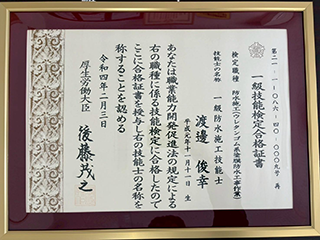 第二一-一-〇八六-四〇-〇〇〇九号 再
一級技能検定合格証書
検定職種 防水施工(ウレタンゴム系塗膜防水工事作業)
技能士の名称 一級防水施工技能士
渡邊 俊幸
平成元年十一月十一日 生
あなたは職業能力開発促進法の規定による
右の職種に係る技能検定に合格したので
ここに合格証書を授与し右の技能士の名称を
称することを認める
令和四年二月三日
厚生労働大臣 後藤茂之